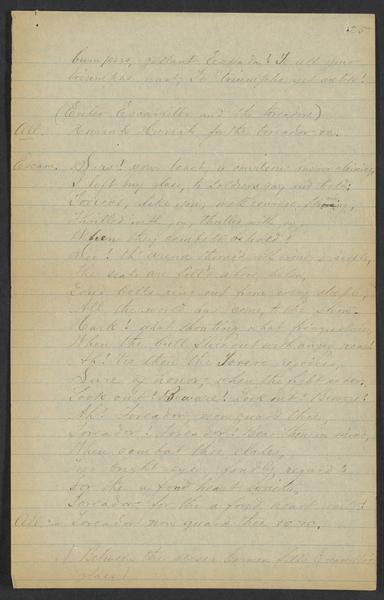 25
bumpers, gallant Granada! To all your
triumphs past, To triumphs yet untold!
(Enter Escamillo and the toreadors)
All. Hurrah Hurrah for the toreador &c.
Escam. Sirs! your toast,
I lift my glass, to soldiers gay and bold;
Toreros, like you, with courage
Thrilled with joy, thrilled with joy
When they combats behold!
See! th' arena
The seats are fill'd above, below,
Loud bells ring out from every steeple,
All the world has come to the show.
Hark! what shouting what
When the bull strides out with angry roar!
Ah! tis then the Torero rejoices,
Sure of honor, when the fight is o'er.
Look out! Beware! Look out! Beware!
Ah! Toreador, now guard thee,
Toreador! Toreador! Bear thou in mind,
When combat thee elates,
Two bright eyes, fondly, regard
For thee a fond heart waits,
Toreador for thee a fond heart waits!
All Toreador now guard thee &c &c.
(Between the verses Carmen fills Escamillo's
glass)